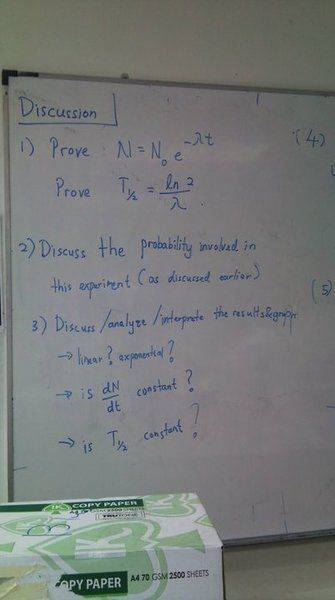 Discussion
1) Prove N = N₀ e^-λt (4)
Prove T½ = ln 2 / λ.
2) Discuss the probability involved in
this experiment (as discussed earlier) (5)
3) Discuss/analyze/interprete the results&graph
→ linear? exponential?
→ is dN/dt constant?
→ is T½ constant?
COPY PAPER
A4 70 GSM 2500 SHEETS
TRUTONE
COPY PAPER A4 70 GSM 2500 SHEETS